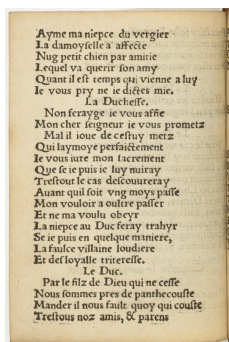 Ayme ma niepce du vergier
La damoyselle a affecte
Nug petit chien par amitie
Lequel va querir son amy
Quant il est temps qui vienne a luy
Ie vous pry ne ie dictes mie.
La Duchesse.
Non ferayge ie vous affie
Mon cher seigneur ie vous prometz
Mal il ioue de cestuy metz
Qui laymoye perfaictement
Ie vous iure mon sacrement
Que se ie puis ie luy nuiray
Trestout le cas descouureray
Auant quil soit vng moys passe
Mon vouloir a oultre passer
Et ne ma voulu obeyr
La niepce au Duc feray trahyr
Se ie puis en quelque maniere,
La faulce villaine loudiere
Et desloyalle triteresse.
Le Duc.
Par le filz de Dieu qui ne cesse
Nous sommes pres de panthecouste
Mander il nous fault quoy qui couste
Trestous noz amis, & parens